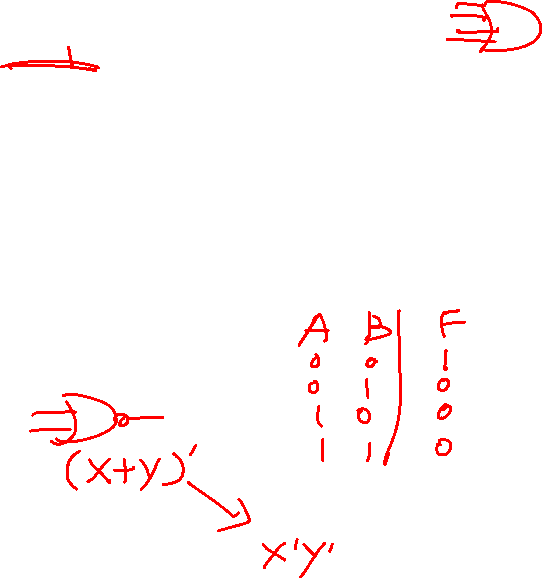 A B F
0 0 1
0 1 0
1 0 0
1 1 0
(x+y)'
x'y'